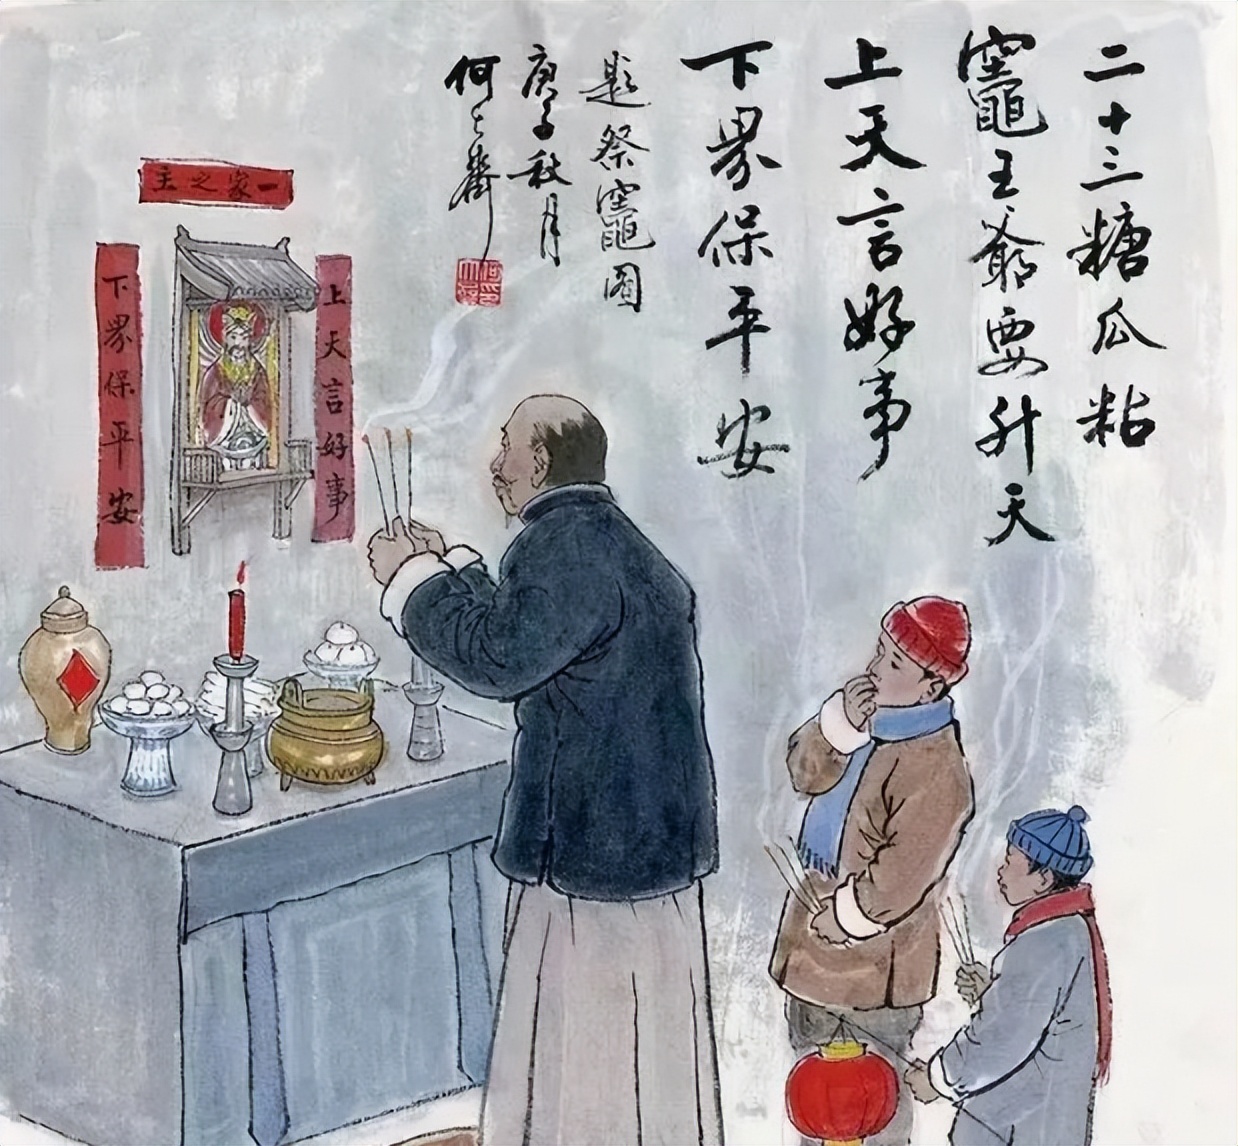 二十三糖瓜粘
竈王爺要升天
上天言好事
下界保平安
题祭竈图
庚子秋月
何
一家之主
上天言好事
下界保平安